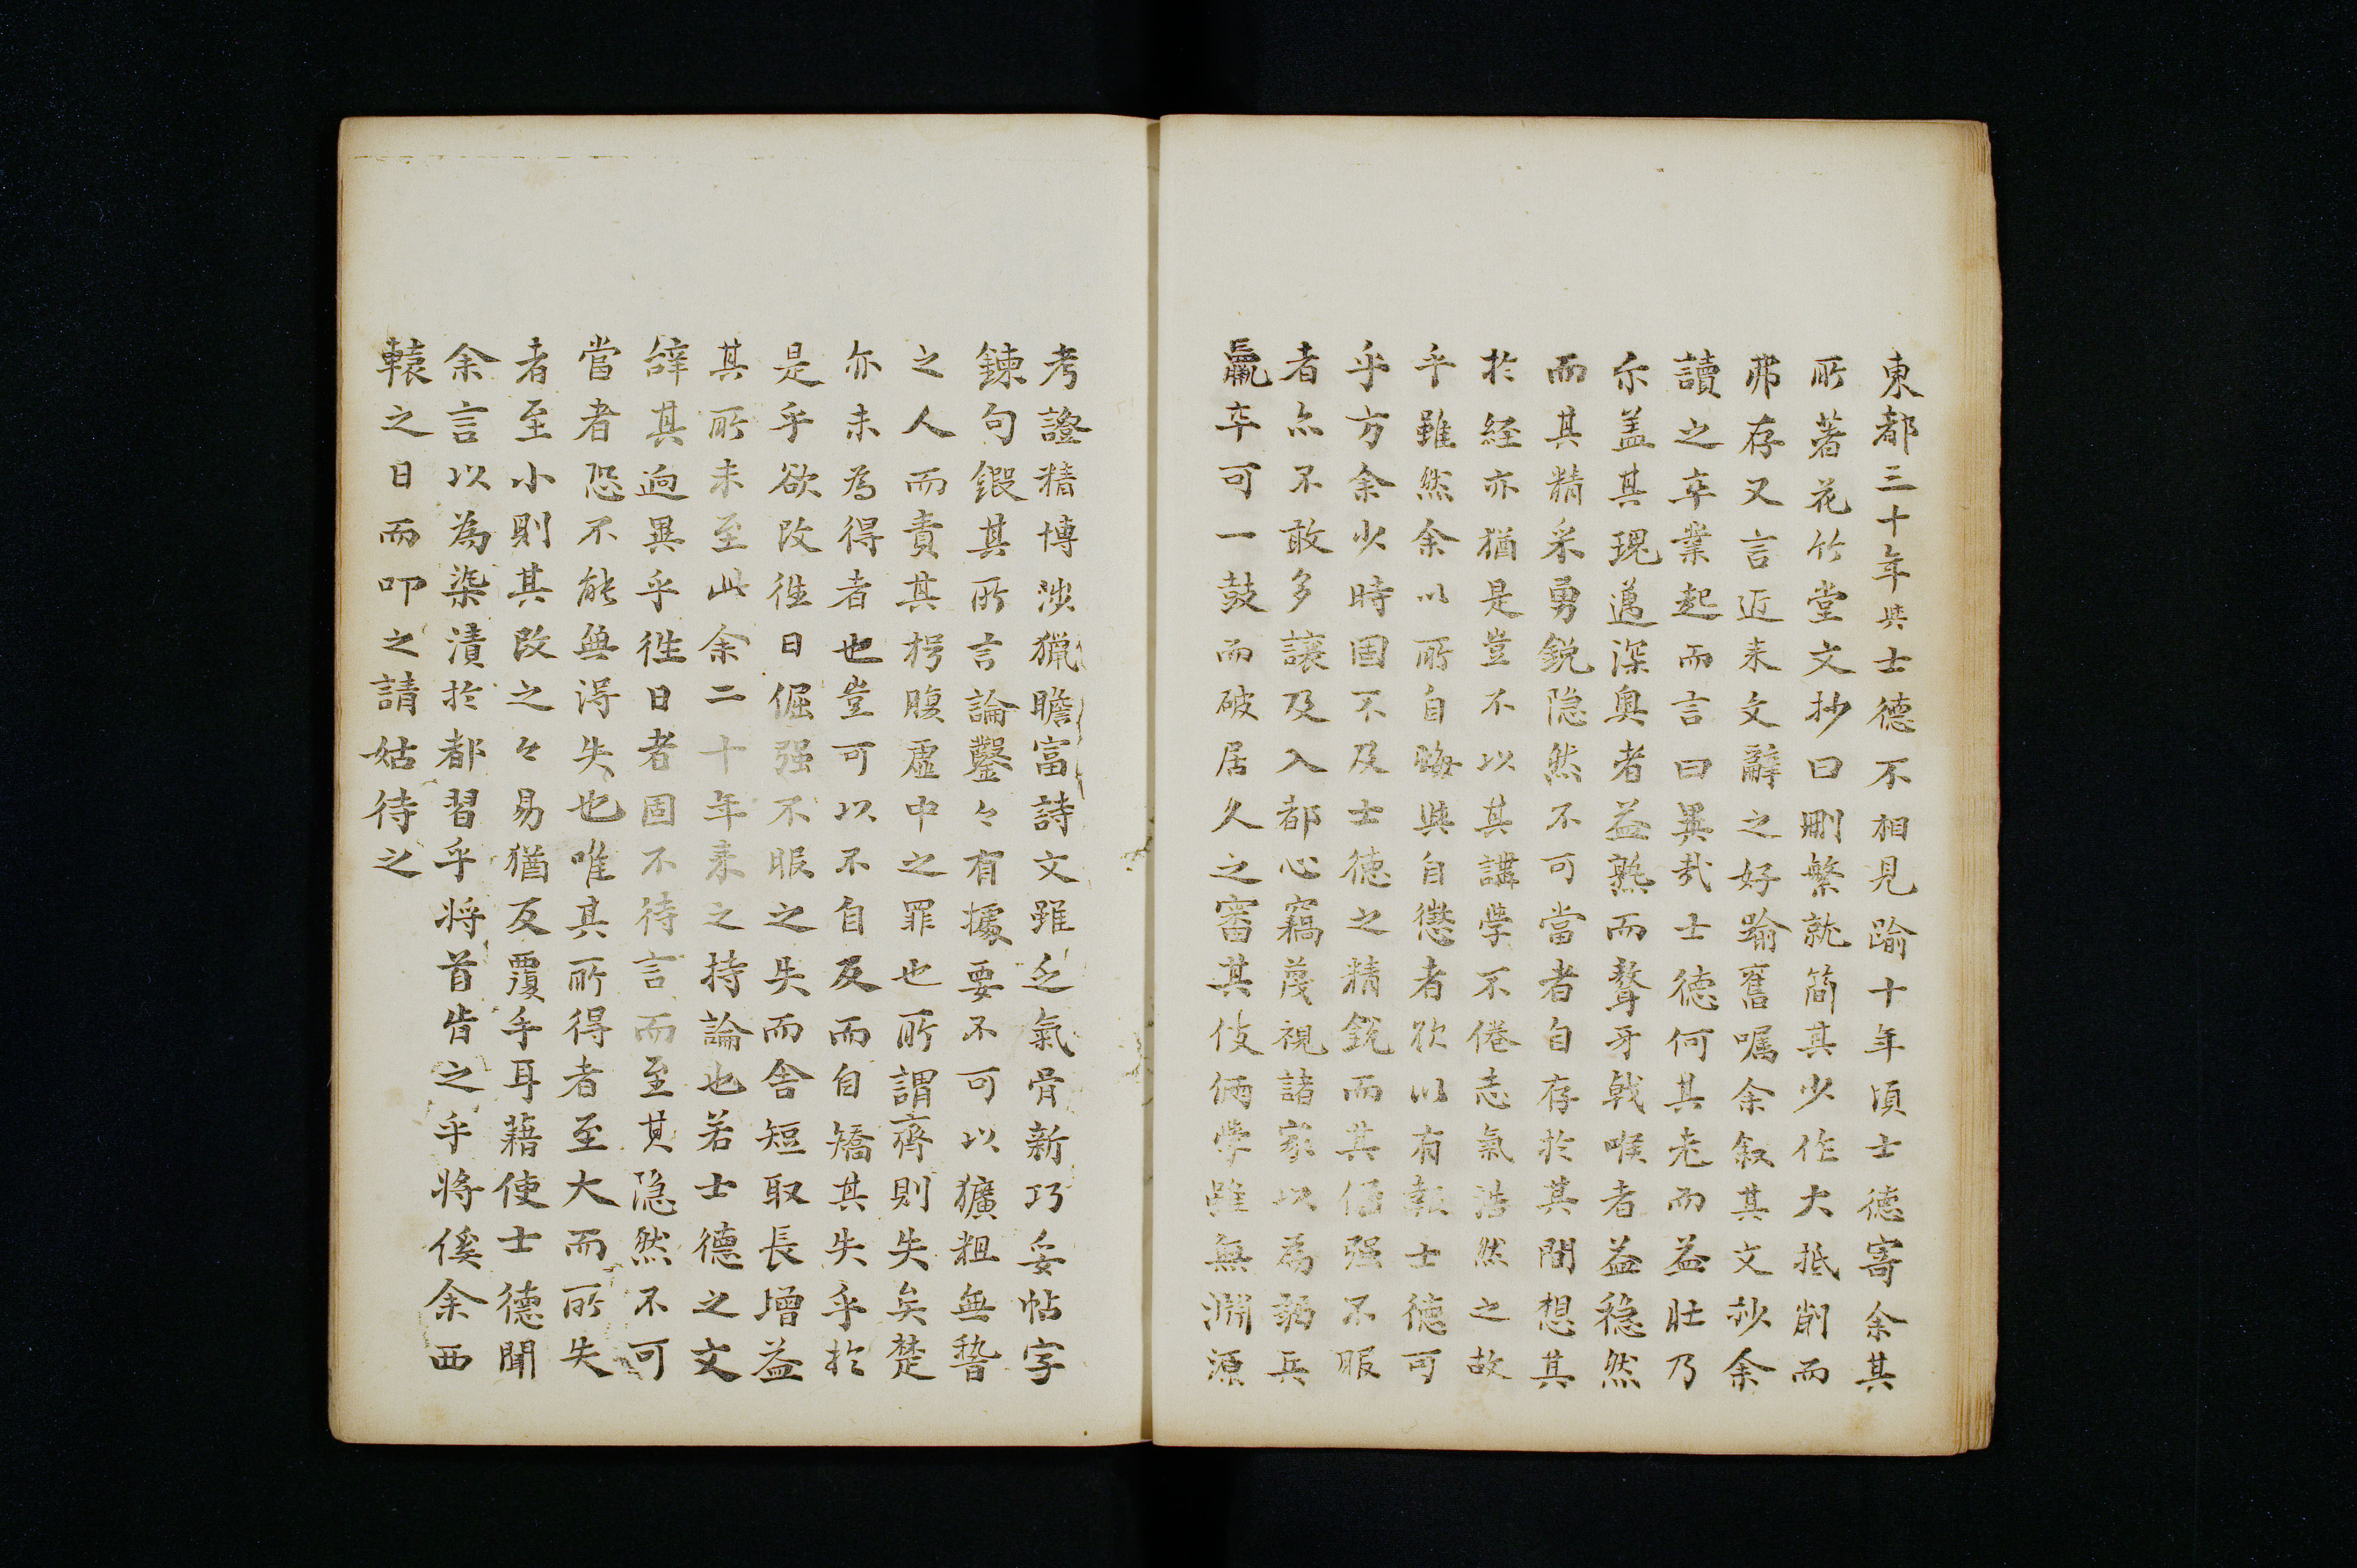 東都三十年與士德不相見踰十年頃士徳寄余其
所著花竹堂文抄曰刪繁就簡其少作大抵削而
弗存又言近来文辭之好踰舊嘱余叙其文抄余
讀之卒業起而言曰異㦲士徳何其老而益壮乃
尓盖其瑰邁深奥者益熟而聱牙戟喉者益穏然
而其精采勇鋭隠然不可當者自存於其間想其
於経亦猶是豈不以其講学不倦志氣浩然之故
乎雖然余以所自晦與自懲者欲以有報士徳可
乎方余少時固不及士徳之精鋭而其倔强不服
者亦不敢多譲及入都心竊蔑視諸家以為弱兵
羸卒可一鼓而破居久之審其伎倆学雖無淵源
考證精博渉獵瞻富詩文雖乏氣骨新巧妥帖字
鍊句鍜其所言論鑿々有據要不可以獷粗無摯
之人而責其枵腹虚中之罪也所謂齊則失矣楚
亦未為得者也豈可以不自反而自矯其失乎於
是乎欲改徃日倔强不服之失而舎短取長増益
其所未至此余二十年来之持論也若士德之文
辞其逈異乎徃日者固不待言而至其隠然不可
當者恐不能無得失也唯其所得者至大而所失
者至小則其改之々易猶反覆手耳藉使士德聞
余言以為染漬於都習乎将首肯之乎将俟余西
轅之日而叩之請姑待之